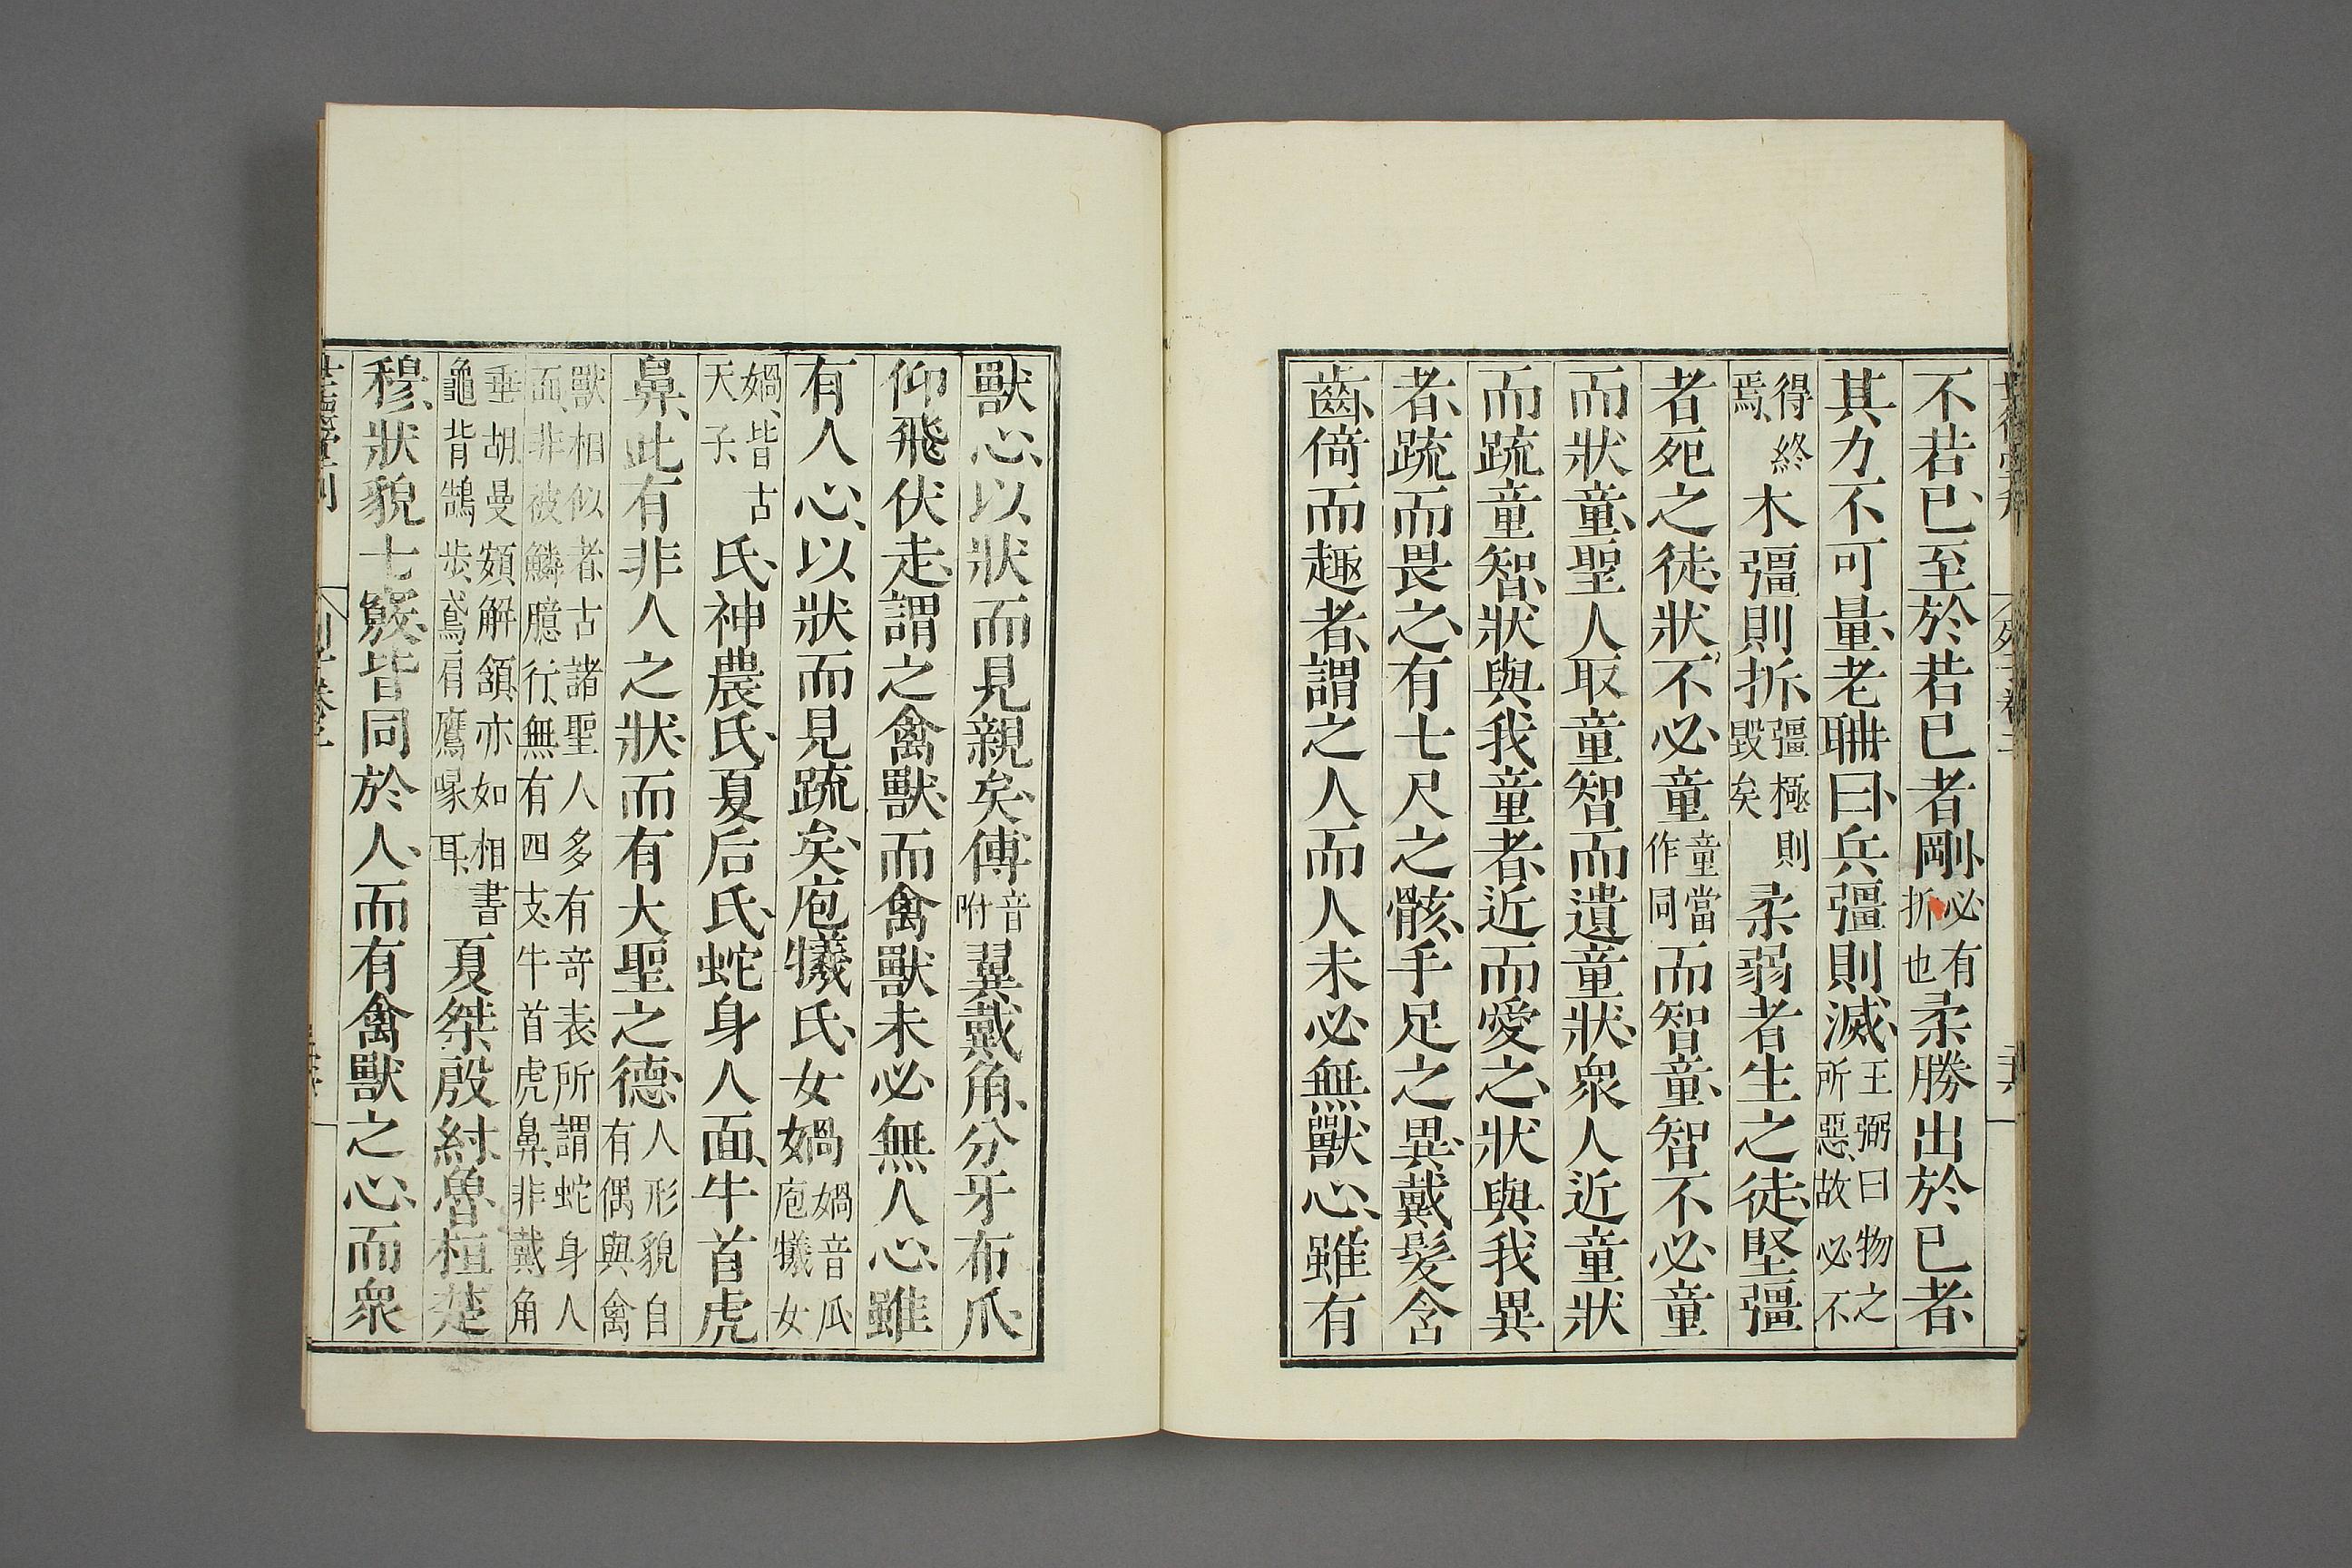 不若已、至於若已者剛必有折也柔勝出於已者、
其力不可量、老聃曰、兵彊則滅、王弼曰物之所惡、故必不
得終焉、木彊則折、彊極則毀矣柔弱者生之徒、堅彊
者死之徒、狀不必童童當作同而智童、智不必童
而狀童、聖人取童智而遺童狀、衆人近童狀
而疏童智、狀與我童者、近而愛之、狀與我異
者、疏而畏之、有七尺之骸、手足之異、戴髮含
齒、倚而趣者、謂之人、而人未必無獸心、雖有
獸心、以狀而見親矣、傅音附翼戴角、分牙布爪、
仰飛伏走、謂之禽獸、而禽獸未必無人心、雖
有人心、以狀而見疏矣、庖犧氏、女媧媧音瓜庖犧女
媧、皆古天子氏、神農氏、夏后氏、蛇身人面、牛首虎
鼻、此有非人之狀、而有大聖之德、人形貌自有偶與禽
獸相似者、古諸聖人多有奇表、所謂蛇身人面、非被鱗臆行、無有四支、牛首虎鼻、非戴角
垂胡、曼頞解頷、亦如相書龜背鵠步鳶肩鷹喙耳、夏桀殷紂魯桓楚
穆、狀貌七竅、皆同於人、而有禽獸之心、而衆
世德堂刊
列子卷二